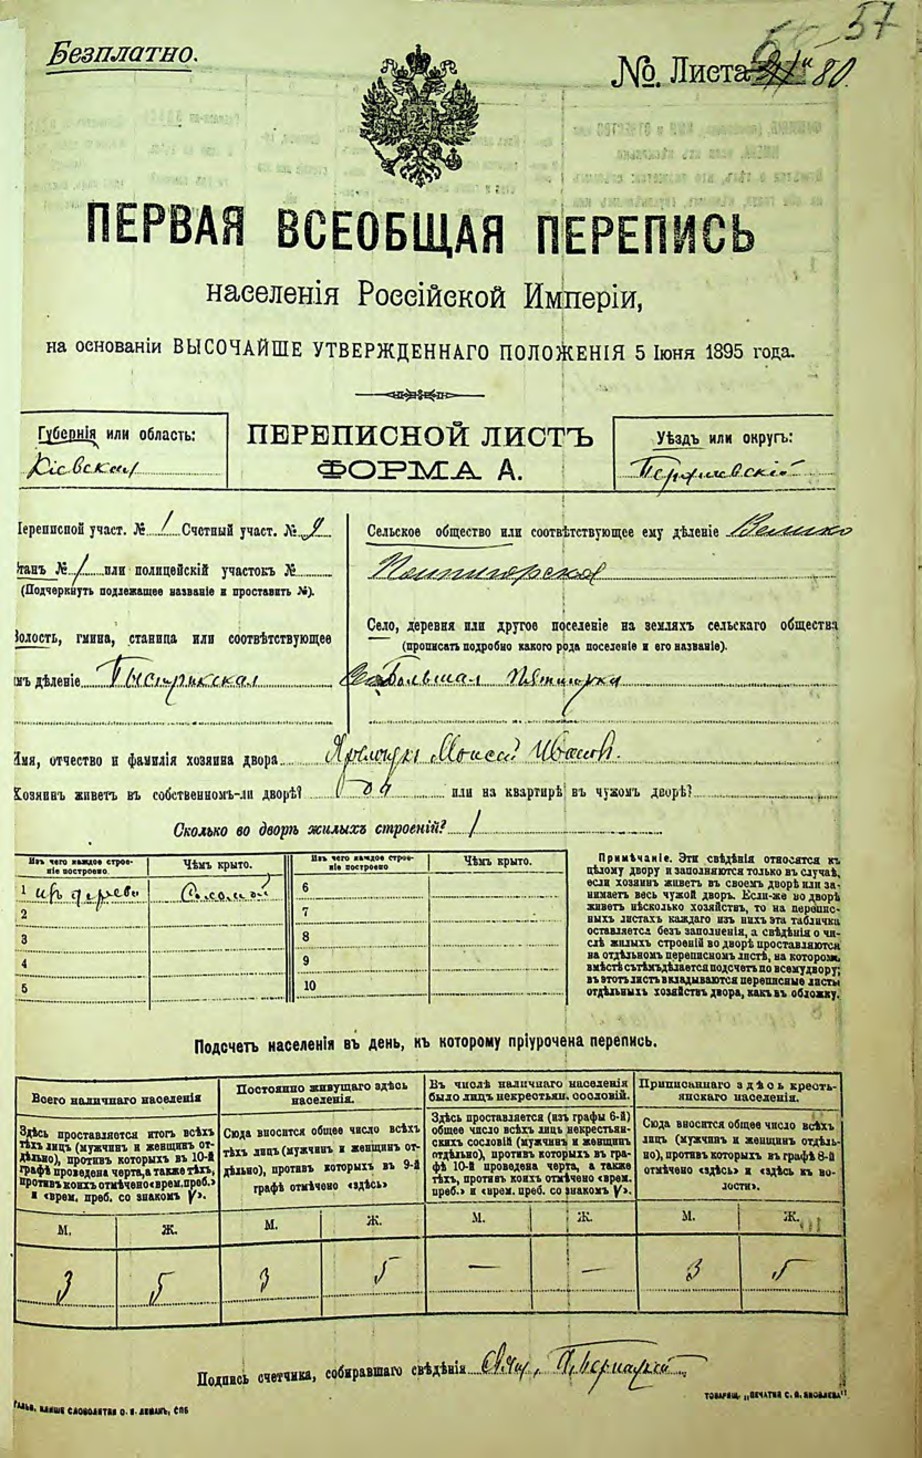 Безплатно.
№. Листа 80.
57
ПЕРВАЯ ВСЕОБЩАЯ ПЕРЕПИСЬ
населенія Россійской Имперіи,
на основаніи ВЫСОЧАЙШЕ УТВЕРЖДЕННАГО ПОЛОЖЕНІЯ 5 Іюня 1895 года.
Губернія или область:
Кіевская
ПЕРЕПИСНОЙ ЛИСТЪ
ФОРМА А.
Уѣздъ или округъ:
Переписной участ. № 1 Счетный участ. № 9
Станъ № 1 или полицейскій участокъ №
(Подчеркнуть подлежащее названіе и проставить №).
Волость, гмина, станица или соотвѣтствующее
имъ дѣленіе
Сельское общество или соотвѣтствующее ему дѣленіе Велико
Село, деревня или другое поселеніе на земляхъ сельскаго общества
(прописать подробно какого рода поселеніе и его названіе).
Большая Пятигорка
Имя, отчество и фамилія хозяина двора Моисей Иванов.
Хозяинъ живетъ въ собственномъ-ли дворѣ? да или на квартирѣ въ чужомъ дворѣ?
Сколько во дворѣ жилыхъ строеній? 1
Изъ чего каждое строеніе построено.
Чѣмъ крыто.
Изъ чего каждое строеніе построено
Чѣмъ крыто.
1 изъ дерева Соломой
2
3
4
5
6
7
8
9
10
Примѣчаніе. Эти свѣдѣнія относятся къ
цѣлому двору и заполняются только въ случаѣ,
если хозяинъ живетъ въ своемъ дворѣ или за-
нимаетъ весь чужой дворъ. Если-же во дворѣ
живетъ нѣсколько хозяйствъ, то на перепис-
ныхъ листахъ каждаго изъ нихъ эта табличка
оставляется безъ заполненія, а свѣдѣнія о чи-
слѣ жилыхъ строеній во дворѣ проставляются
на отдѣльномъ переписномъ листѣ, на которомъ
вмѣстѣ съ тѣмъ дѣлается подсчетъ по всему двору;
въ этотъ листъ вкладываются переписные листы
отдѣльныхъ хозяйствъ двора, какъ въ обложку.
Подсчетъ населенія въ день, къ которому пріурочена перепись.
Всего наличнаго населенія
Здѣсь проставляется итогъ всѣхъ
тѣхъ лицъ (мужчинъ и женщинъ от-
дѣльно), противъ которыхъ въ 10-й
графѣ проведена черта, а также тѣхъ,
противъ коихъ отмѣчено «врем. преб.»
и «врем. преб. со знакомъ V».
Постоянно живущаго здѣсь
населенія.
Сюда вносится общее число всѣхъ
тѣхъ лицъ (мужчинъ и женщинъ от-
дѣльно), противъ которыхъ въ 9-й
графѣ отмѣчено «здѣсь»
Въ числѣ наличнаго населенія
было лицъ некрестьян. сословій.
Здѣсь проставляется (изъ графы 6-й)
общее число всѣхъ лицъ некрестьян-
скихъ сословій (мужчинъ и женщинъ
отдѣльно), противъ которыхъ въ гра-
фѣ 10-й проведена черта, а также
тѣхъ, противъ коихъ отмѣчено «врем.
преб.» и «врем. преб. со знакомъ V».
Приписаннаго здѣсь кресть-
янскаго населенія.
Сюда вносится общее число всѣхъ
лицъ (мужчинъ и женщинъ отдѣль-
но), противъ которыхъ въ графѣ 8-й
отмѣчено «здѣсь» и «здѣсь въ во-
лости».
М. Ж. М. Ж. М. Ж. М. Ж.
3 5 3 5 — — 3 5
Подпись счетчика, собиравшаго свѣдѣнія
СЛОВОЛИТНЯ О. И. ЛЕМАНЪ, СПБ
ТОВАРИЩ. „ПЕЧАТНЯ С. П. ЯКОВЛЕВА"